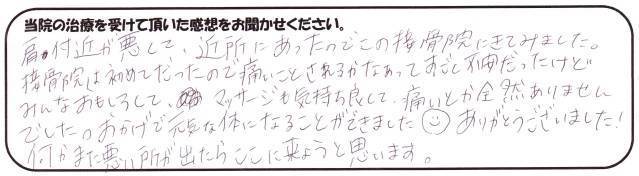 当院の治療を受けて頂いた感想をお聞かせください。
肩付近が悪くて、近所にあったのでこの接骨院にきてみました。
接骨院は初めてだったので痛いことされるかなあってすごし不安だったけど
みんなおもしろくて、マッサージも気持ち良くて、痛いとか全然ありません
でした。おかげで元気な体になることができました ありがとうございました!
何かまた悪い所が出たらここに来ようと思います。